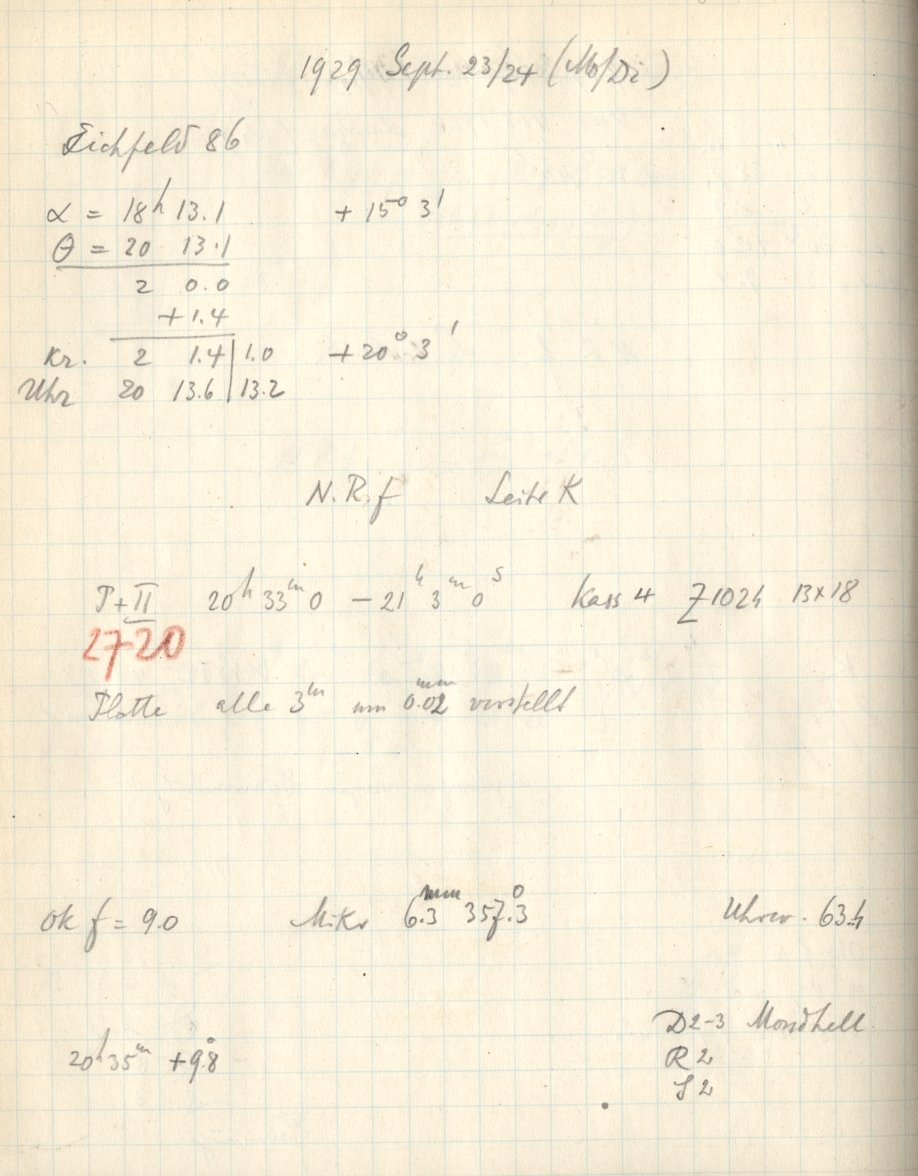 1929 Sept. 23/24 (Mo/Di)
Eichfeld 86
α = 18h 13.1 + 15° 3'
θ = 20 13.1
2 0.0
+ 1.4
Kr. 2 1.4 | 1.0 + 20° 3'
Uhr 20 13.6 | 13.2
N.R.f Seite K
P+II 20h 33m 0 – 21h 3m 0s Kass 4 Z 1024 13x18
2720
Platte alle 3m um 0.02mm verstellt
Ok f = 9.0 Mikr 6.3mm 357.3° Uhrw. 63.4
D 2-3 Mondhell
20h 35m + 9.8° R 2
S 2